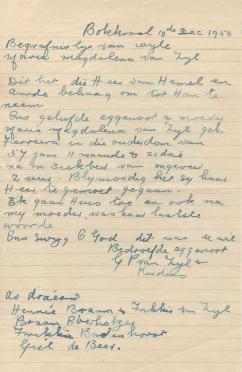 Bokkraal 10de Dec 1950
Begrafnis lys van wyle
Maria Magdalena van Zyl
Dit het die Heer van Hemel en
Aarde behaag om tot Hom te
neem
Ons geliefde eggenoot & moeder
Maria Magdalena van Zyl geb.
in die ouderdom van
57 jaar 11 maande & dae
na n siekbed van ongeveer
2 uur. Blymoedig het sy haar
Heer te gemoet gegaan.
Ek gaan Huis toe en ook na
my moeder, was haar laatste
woorde
Ons swyg O God dit was u wil
Bedroefde eggenoot
G P van Zyl &
Kinders
As draers
Hennie & Frikkie van Zyl
Braam Oberholzer
Frikkie Badenhorst
Giel de Beer.